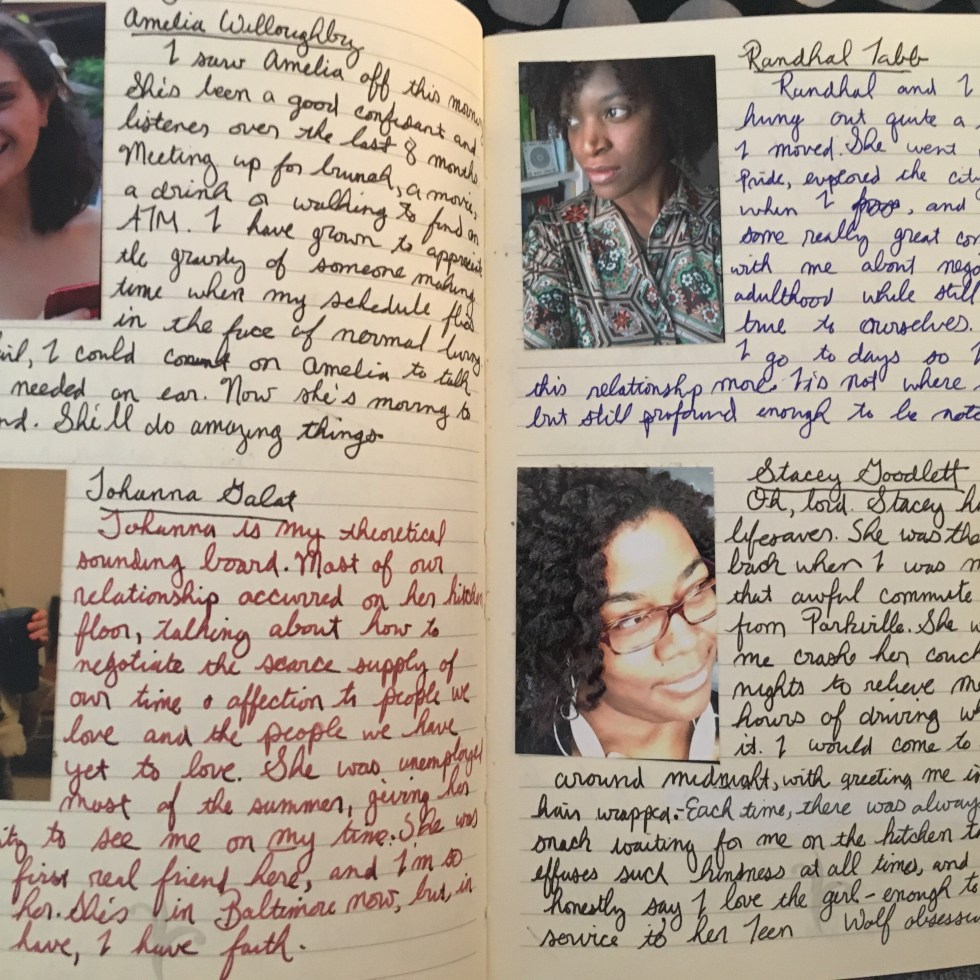 Amelia Willoughby
I saw Amelia off this
She's been a good confidant and
listener over the last 8 months
Meeting up for brunch, a movie,
a drink or walking to find an
ATM. I have grown to
the gravity of someone making
time when my schedule
in the face of normal living
I could count on Amelia to talk
needed an ear. Now she's moving to
She'll do amazing things
Johanna Galat
Johanna is my theoretical
sounding board. Most of our
relationship occurred on her kitchen
floor, talking about how to
negotiate the scarce supply of
our time & affection to people we
love and the people we have
yet to love. She was unemployed
most of the summer, giving her
to see me on my time. She was
first real friend here, and I'm so
her. She's in Baltimore now, but, in
have, I have faith.
Randhal Tabb
Randhal and I
hung out quite a
I moved. She went
Pride, explored the
when I, and
some really great
with me about
adulthood while still
true to ourselves.
I go to days so
this relationship more. It's not where
but still profound enough to be
Stacey Goodlett
Oh, lord. Stacey
lifesaver. She was
back when I was
that awful commute
from Parkville. She
me crash her couch
nights to relieve me
hours of driving
it. I would come to
around midnight, with greeting me
hair wrapped. Each time, there was always
snack waiting for me on the kitchen
effuses such kindness at all times, and
honestly say I love the girl - enough to
service to her Teen Wolf